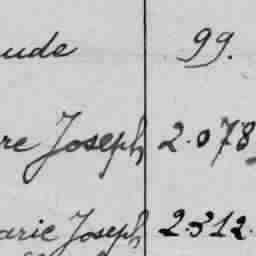 ude 99.
re Joseph 2.078
arie Joseph 2.312.